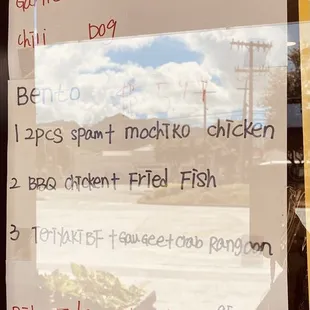 Garlic
chili Dog
Bento
1 2pcs spam + mochiko chicken
2 BBQ chicken + Fried Fish
3 TeriYaki BF + Gau Gee + Crab Rangoon